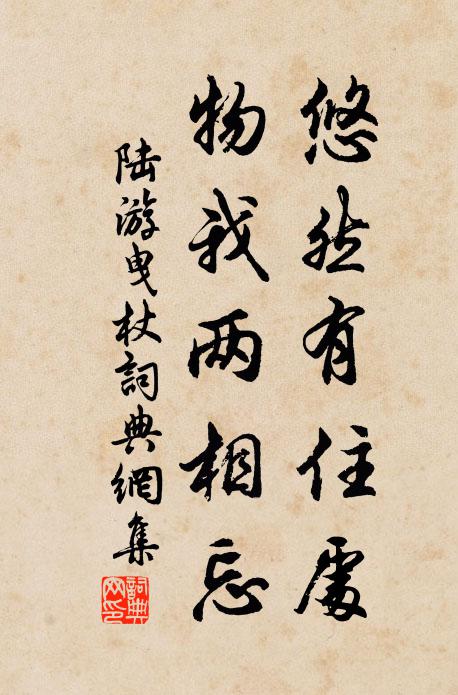 悠然有住處
物我两相忘
陆游曳杖詞典網集
詞典